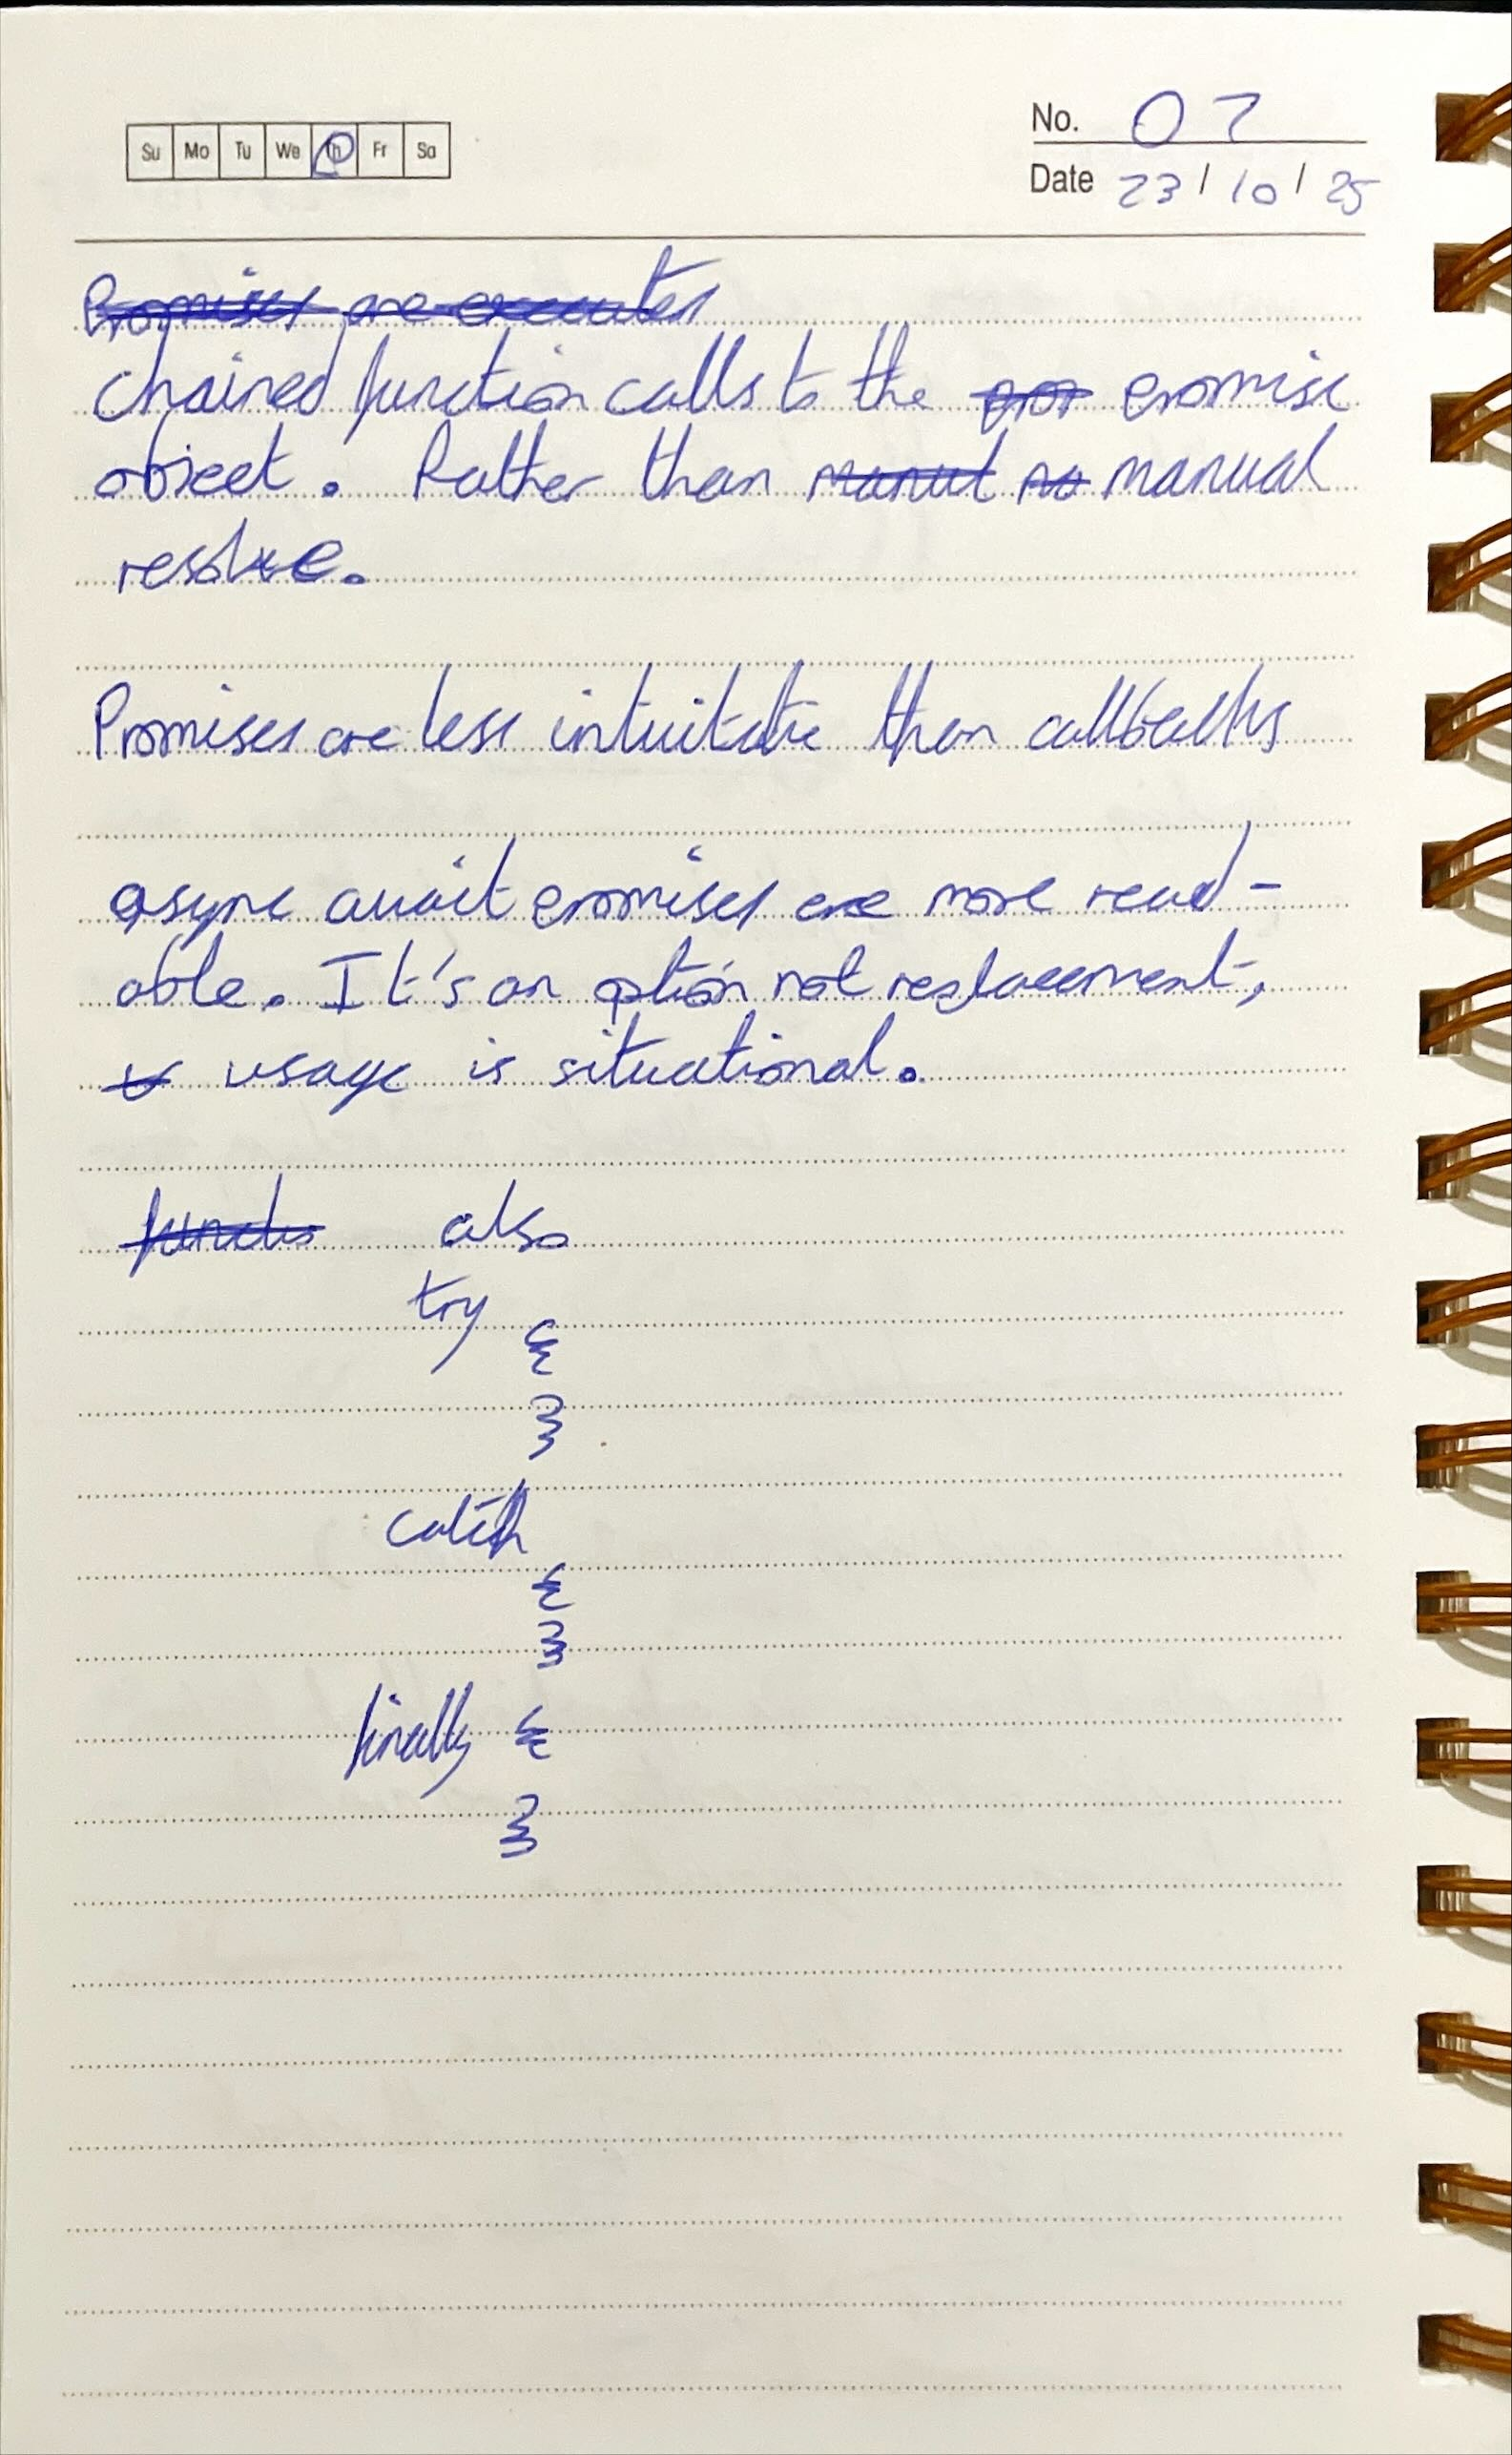 Su Mo Tu We Th Fr Sa
No. 07
Date 23/10/25
Promises are executes
chained function calls to the pro promise
object. Rather than manul no manual
resolve.
Promises are less intuitative than callbacks
async await promises are more read-
able. It's an option not replacement,
usage is situational.
also
try {
}
catch
{
}
finally {
}